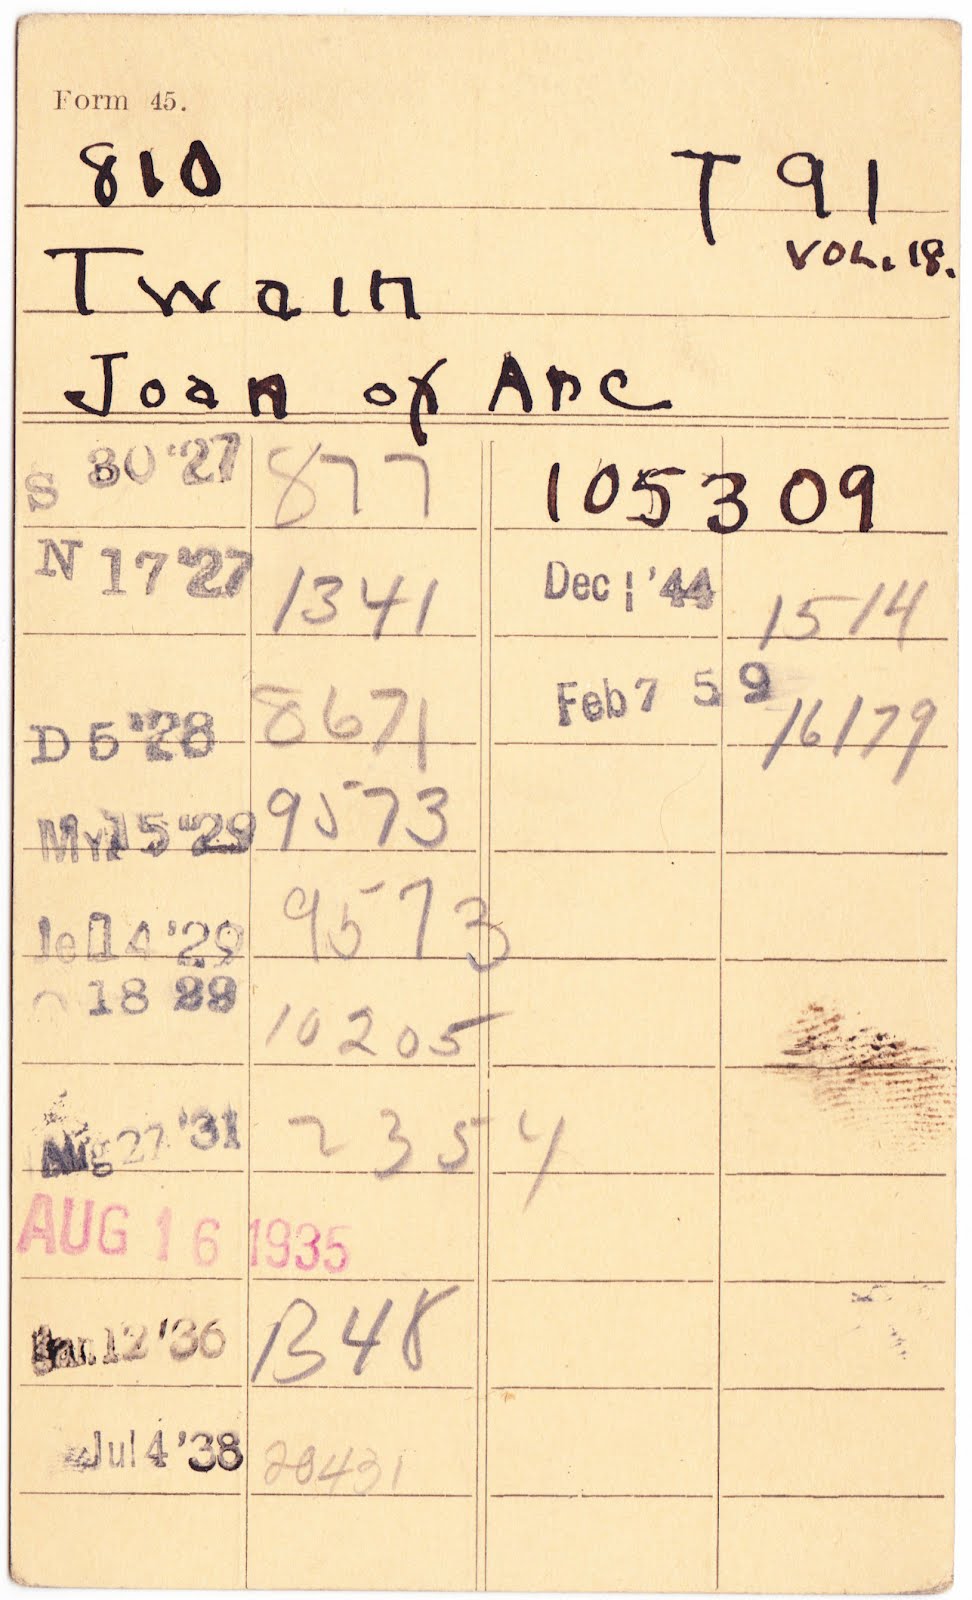 Form 45.
810 T91
VOL. 18.
Twain
Joan of Arc
S 30 '27 877
N 17 '27 1341
D 5 '28 8671
My 15 '29 9573
14 '29 9573
18 29 10205
Aug 27 '31 2354
AUG 16 1935
Jan. 12 '36 B48
Jul 4 '38 20431
105309
Dec 1 '44 1514
Feb 7 59 16179